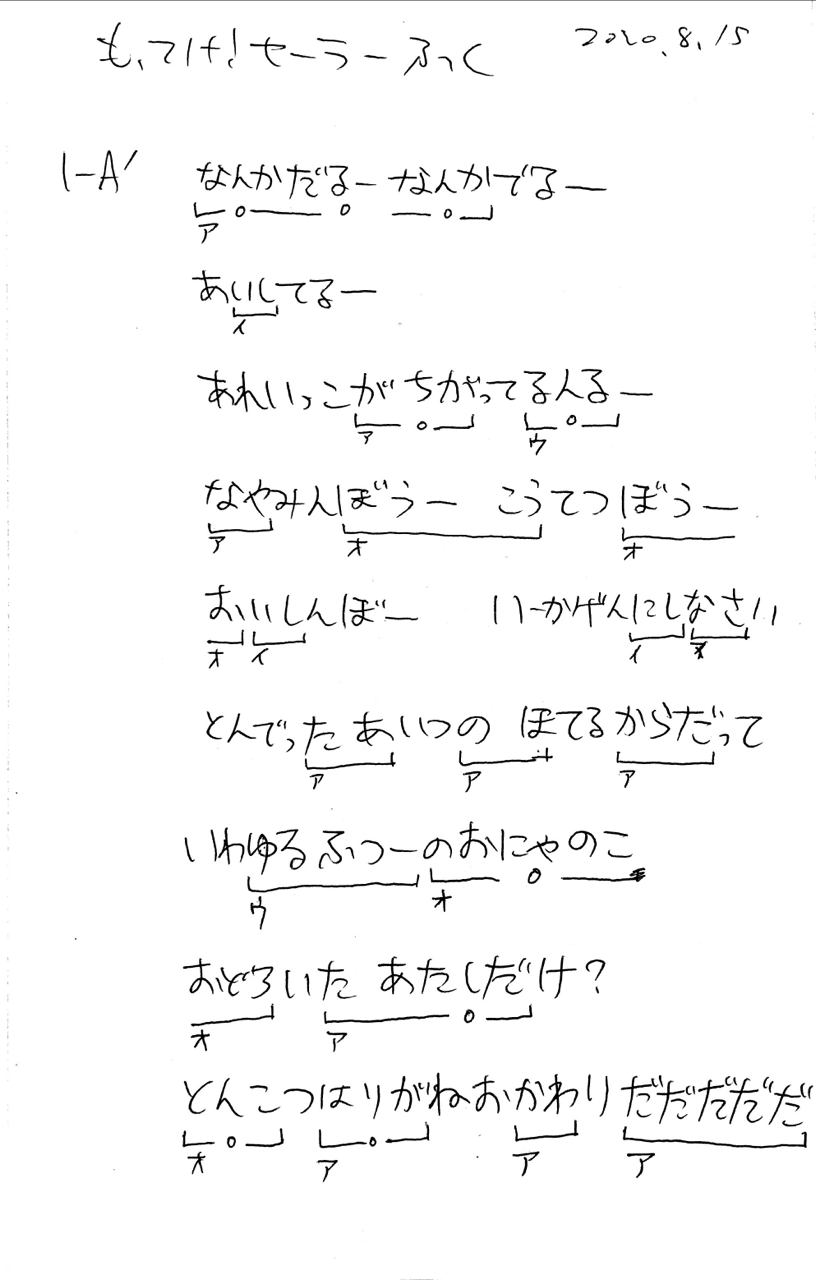 もってけ!セーラーふっく 2020.8.15
1-A' なんかだるー なんかでるー
ア
あいしてるー
イ
あれいっこがちがってるんるー
ア ウ
なやみんぼうー こうてつぼうー
ア オ オ
おいしんぼー いーかげんにしなさい
オ イ イ
とんでったあいつの ほてるからだって
ア ア ア
いわゆるふつーのおにゃのこ
ウ オ
おどろいた あたしだけ?
オ ア
とんこつはりがねおかわりだだだだだ
オ ア ア ア